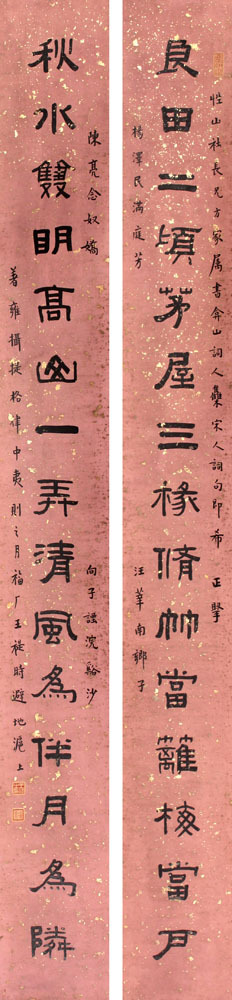 性山社長兄方家属書弇山詞人集宋人詞句即希 正擘
良田二頃茅屋三椽脩竹當籬梅當戶
楊澤民滿庭芳
汪莘南鄉子
陳亮念奴嬌
向子諲浣谿沙
秋水雙明高山一弄清風為伴月為隣
著雍攝提格律中夷則之月福厂王禔時避地滬上